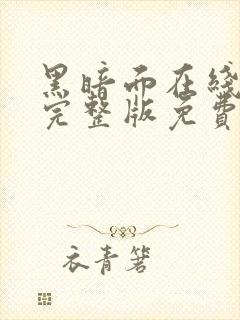 黑暗而在綫
完整版免費
衣青箬